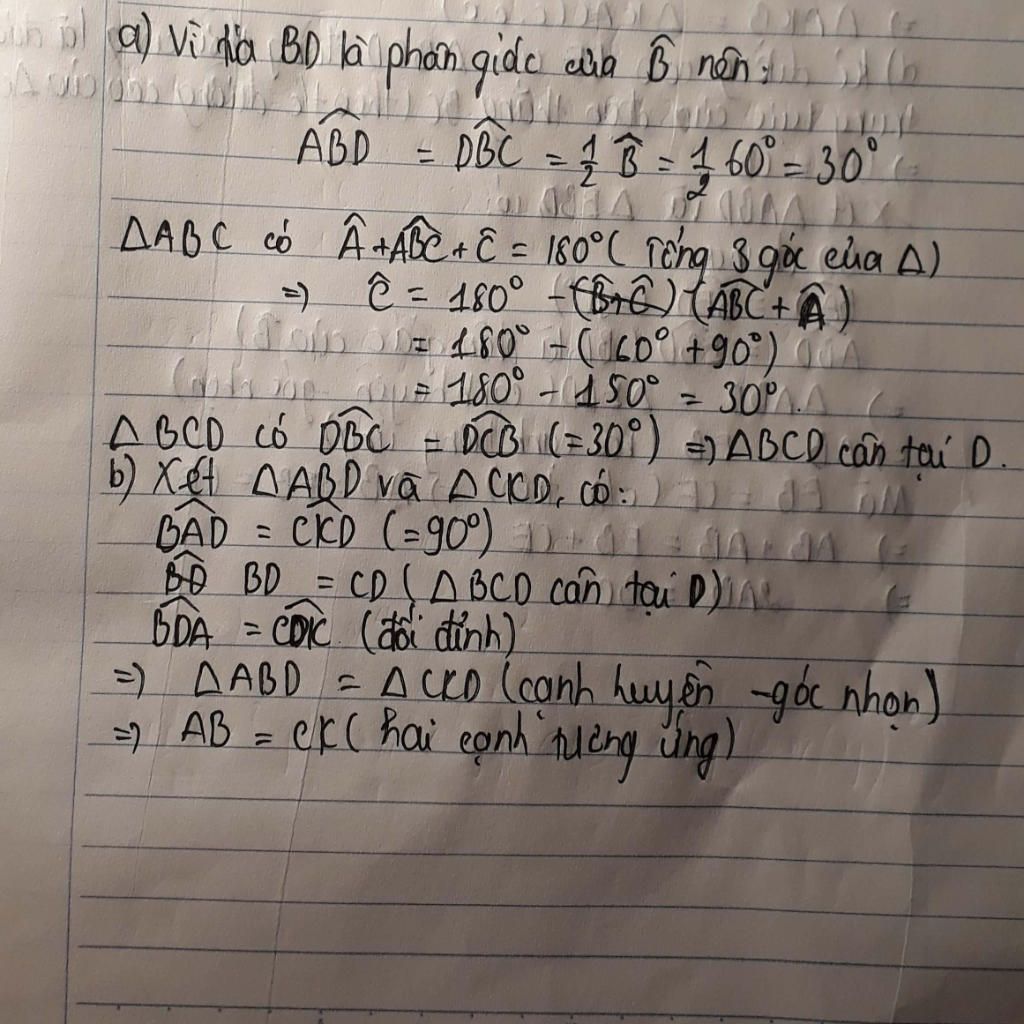 a) Vì tia BD là phân giác của B̂ nên:
ABD̂ = DBĈ = 1/2 B̂ = 1/2 60° = 30°
ΔABC có Â + ABĈ + Ĉ = 180° (Tổng 3 góc của Δ)
=> Ĉ = 180° - (B̂+Ĉ) (ABĈ + Â)
= 180° - (60° + 90°)
= 180° - 150° = 30°.
ΔBCD có DBĈ = DCB̂ (=30°) => ΔBCD cân tại D.
b) Xét ΔABD và ΔCKD, có:
BAD̂ = CKD̂ (=90°)
BD̂ BD = CD (ΔBCD cân tại D)
BDÂ = CDK̂ (đối đỉnh)
=> ΔABD = ΔCKD (cạnh huyền - góc nhọn)
=> AB = CK (hai cạnh tương ứng)